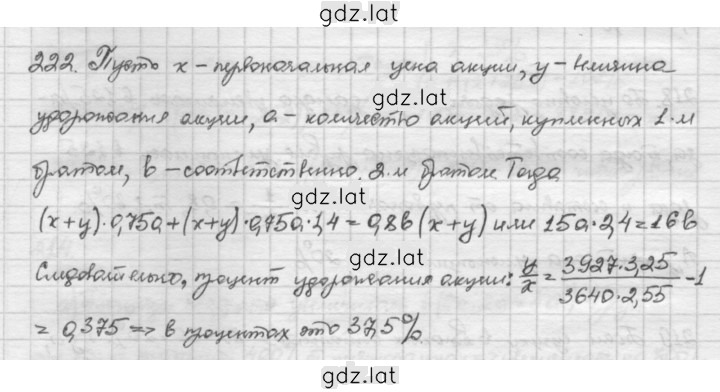 gdz.lat
222. Пусть x – первоначальная цена акции, y – величина
gdz.lat
удорожания акции, a – количество акций, купленных 1-м
братом, b – соответственно 2-м братом. Тогда
gdz.lat
(x+y)·0,75a+(x+y)·0,75a·1,4=0,8b(x+y) или 15a·2,4=16b
gdz.lat
Следовательно, процент удорожания акции: y/x = 3927·3,25/3640·2,55 - 1
= 0,375 => в процентах это 37,5%.
gdz.lat